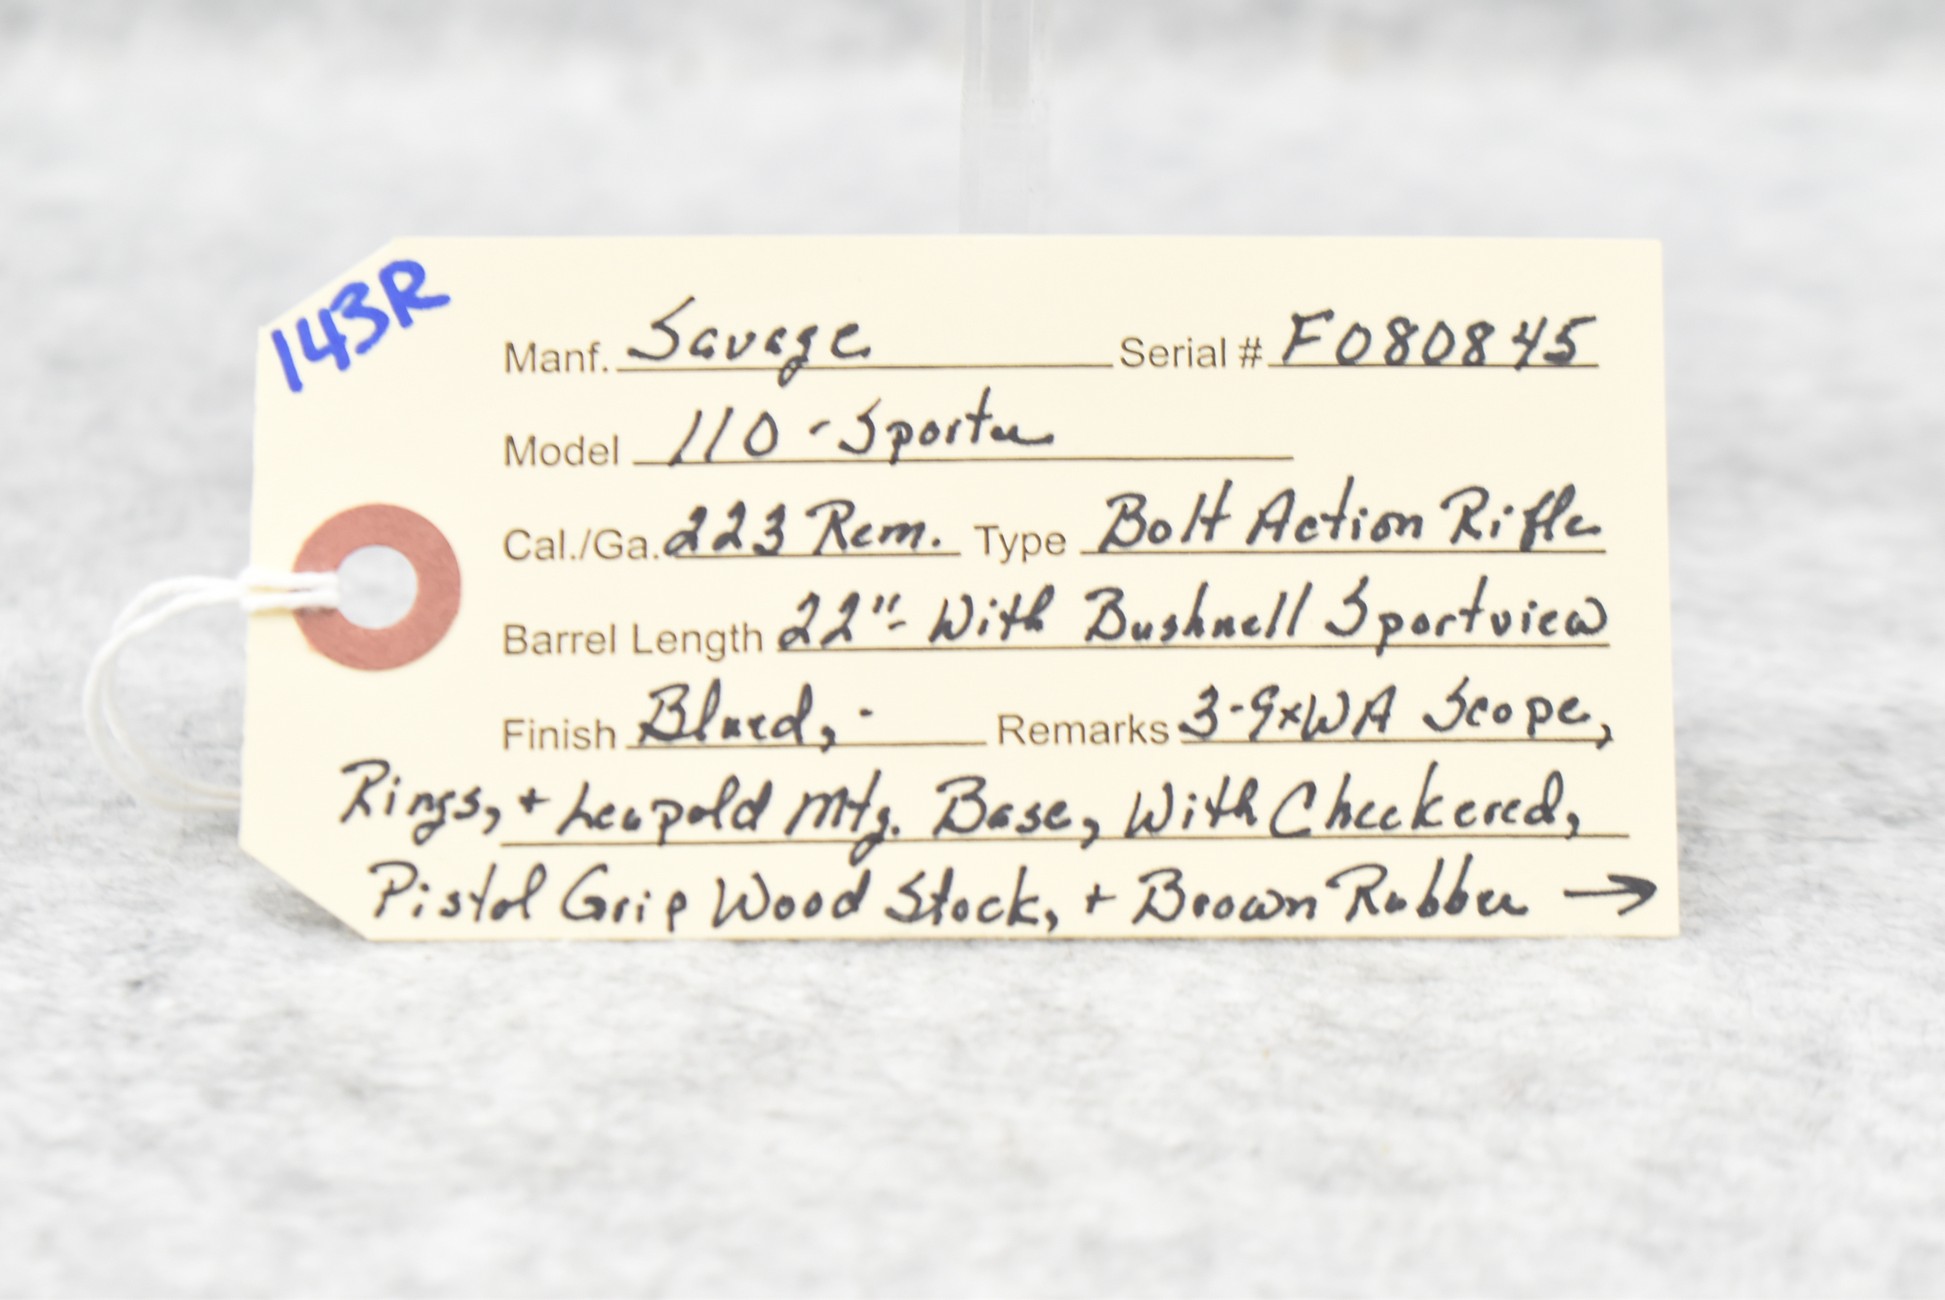 143R
Manf. Savage Serial # F080845
Model 110-Sporter
Cal./Ga. 223 Rem. Type Bolt Action Rifle
Barrel Length 22"- With Bushnell Sportview
Finish Blued, - Remarks 3-9xWA Scope,
Rings, + Leupold Mtg. Base, With Checkered,
Pistol Grip Wood Stock, + Brown Rubber →